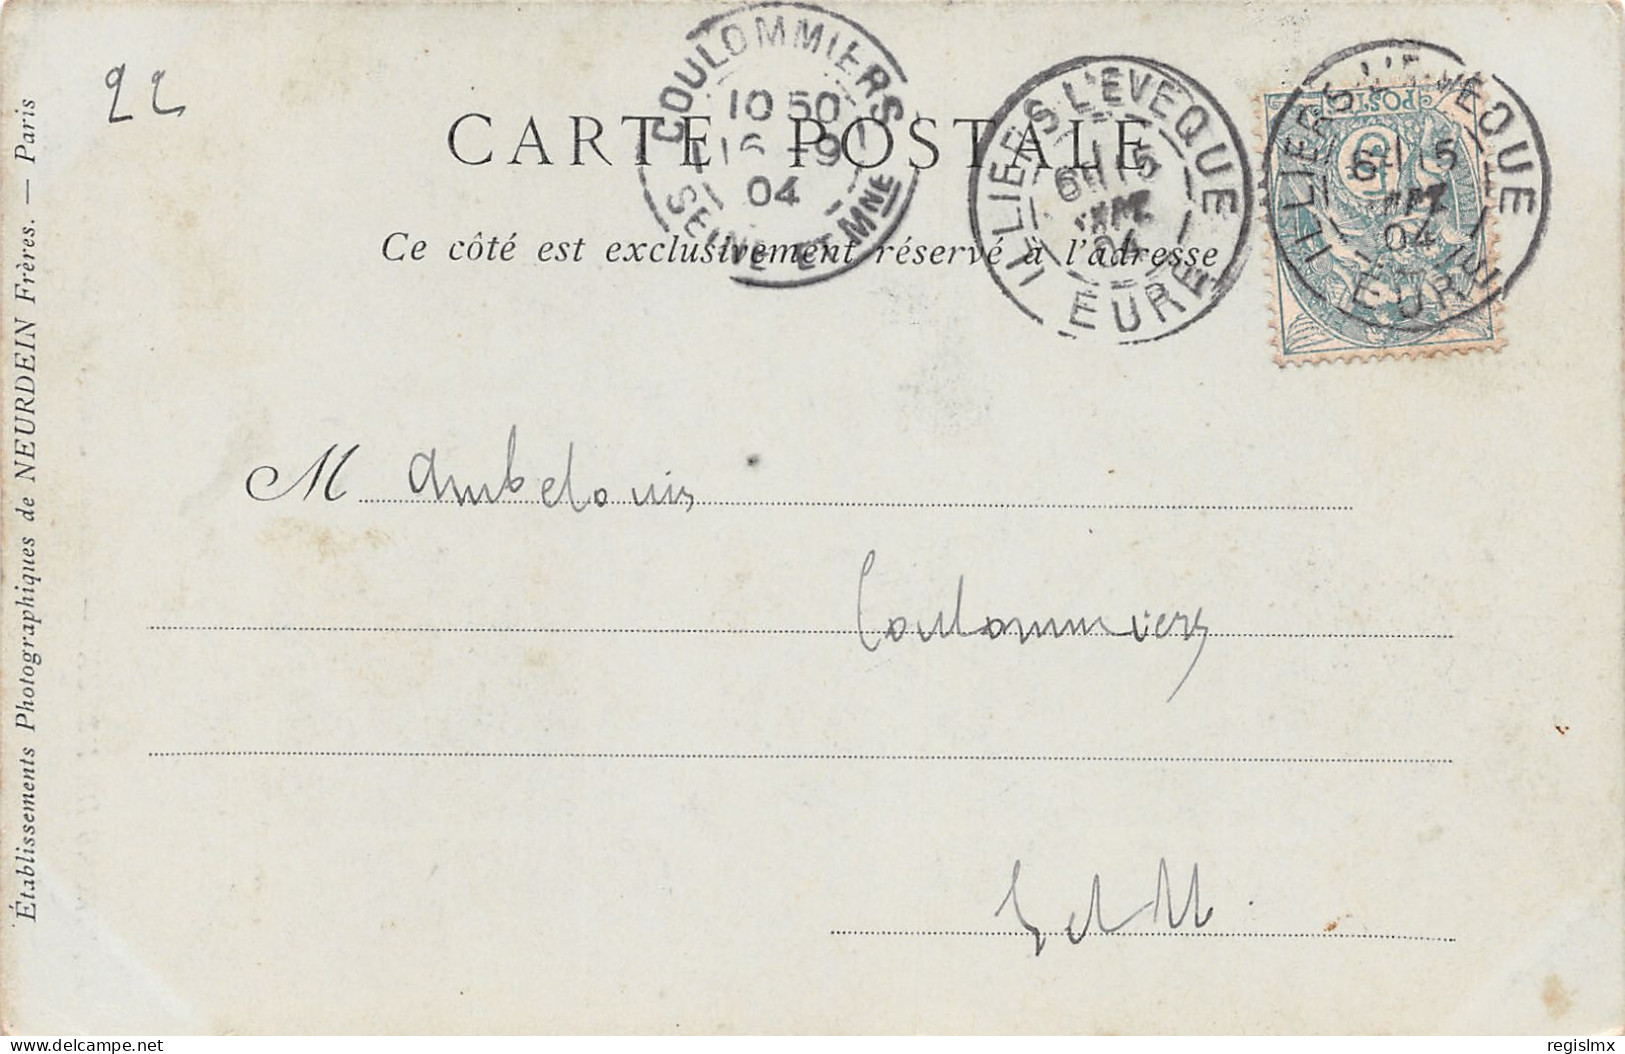 22
COULOMMIERS
10 50
16 -9
04
SEINE-ET-MNE
ILLIERS L'EVEQUE
6H 15
04
EURE
ILLIERS L'EVEQUE
6H 15
04
EURE
POSTES
5
CARTE POSTALE
Ce côté est exclusivement réservé à l'adresse
M Ambelouis
Coulommiers
S et M.
Établissements Photographiques de NEURDEIN Frères. — Paris
delcampe.net
regislmx